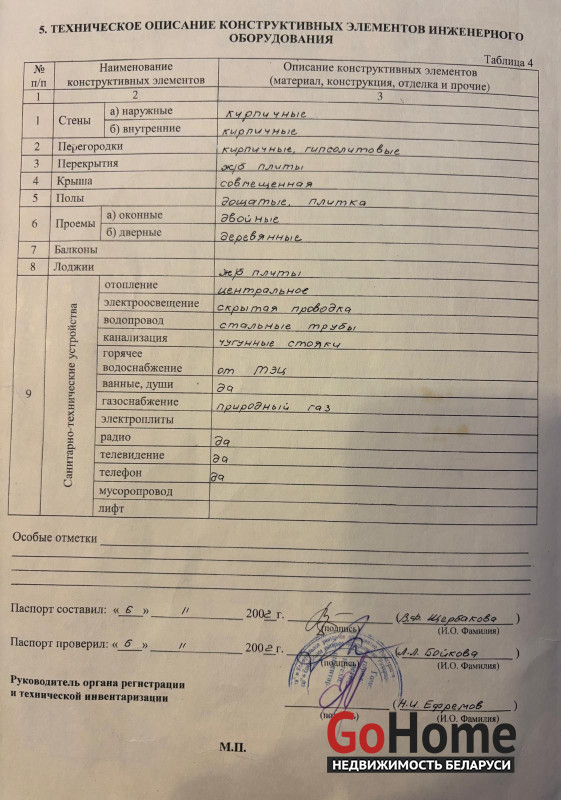 5. ТЕХНИЧЕСКОЕ ОПИСАНИЕ КОНСТРУКТИВНЫХ ЭЛЕМЕНТОВ ИНЖЕНЕРНОГО
ОБОРУДОВАНИЯ
Таблица 4
№ п/п Наименование конструктивных элементов Описание конструктивных элементов (материал, конструкция, отделка и прочие)
1 2 3
1 Стены а) наружные кирпичные
б) внутренние кирпичные
2 Перегородки кирпичные, гипсолитовые
3 Перекрытия ж/б плиты
4 Крыша совмещенная
5 Полы дощатые, плитка
6 Проемы а) оконные двойные
б) дверные деревянные
7 Балконы
8 Лоджии ж/б плиты
9 Санитарно-технические устройства
отопление центральное
электроосвещение скрытая проводка
водопровод стальные трубы
канализация чугунные стояки
горячее водоснабжение от ТЭЦ
ванные, души да
газоснабжение природный газ
электроплиты
радио да
телевидение да
телефон да
мусоропровод
лифт
Особые отметки
Паспорт составил: « 6 » " 2002 г. (В.Ф. Щербакова)
(подпись) (И.О. Фамилия)
Паспорт проверил: « 6 » " 2002 г. (Л.Л. Бойкова)
(подпись) (И.О. Фамилия)
Руководитель органа регистрации
и технической инвентаризации (Н.И. Ефремов)
(подпись) (И.О. Фамилия)
М.П.
GoHome
НЕДВИЖИМОСТЬ БЕЛАРУСИ